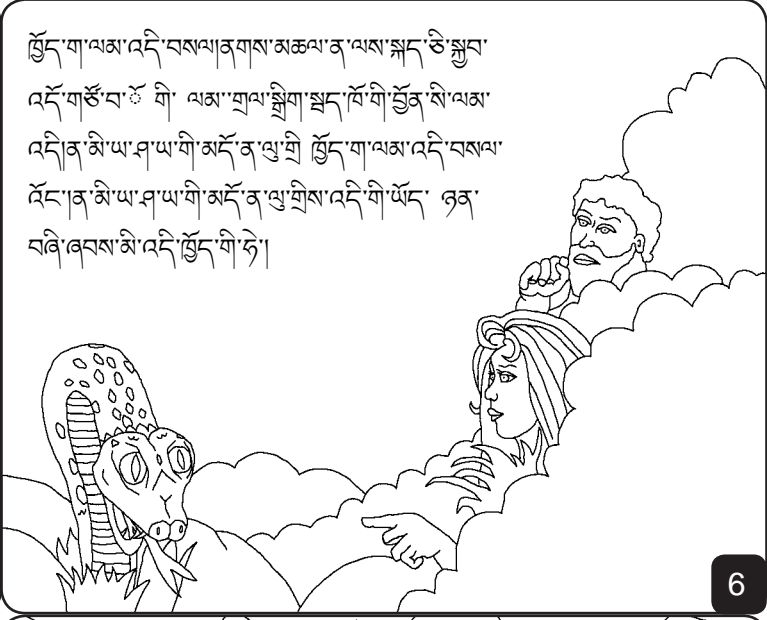 ཁྱོད་ག་ལམ་འདི་བསལ།ནགས་མཆལ་ན་ལས་སྐད་ཅི་སྐྱབ་
འདོ་གཙོ་བ་ོ གི་ ལམ་་གྲལ་སྒྲིག་སྦད་ཁོ་གི་བྱོན་སི་ལམ་
འདི།ན་མི་ཡ་ཤ་ཡ་གི་མདོ་ན་ལུ་གྲི ཁྱོད་ག་ལམ་འདི་བསལ་
འོང་།ན་མི་ཡ་ཤ་ཡ་གི་མདོ་ན་ལུ་གྲིས་འདི་གི་ཡོད་ ཉན་
བཞི་ཞབས་མི་འདི་ཁྱོད་གི་ཧེ་།
6